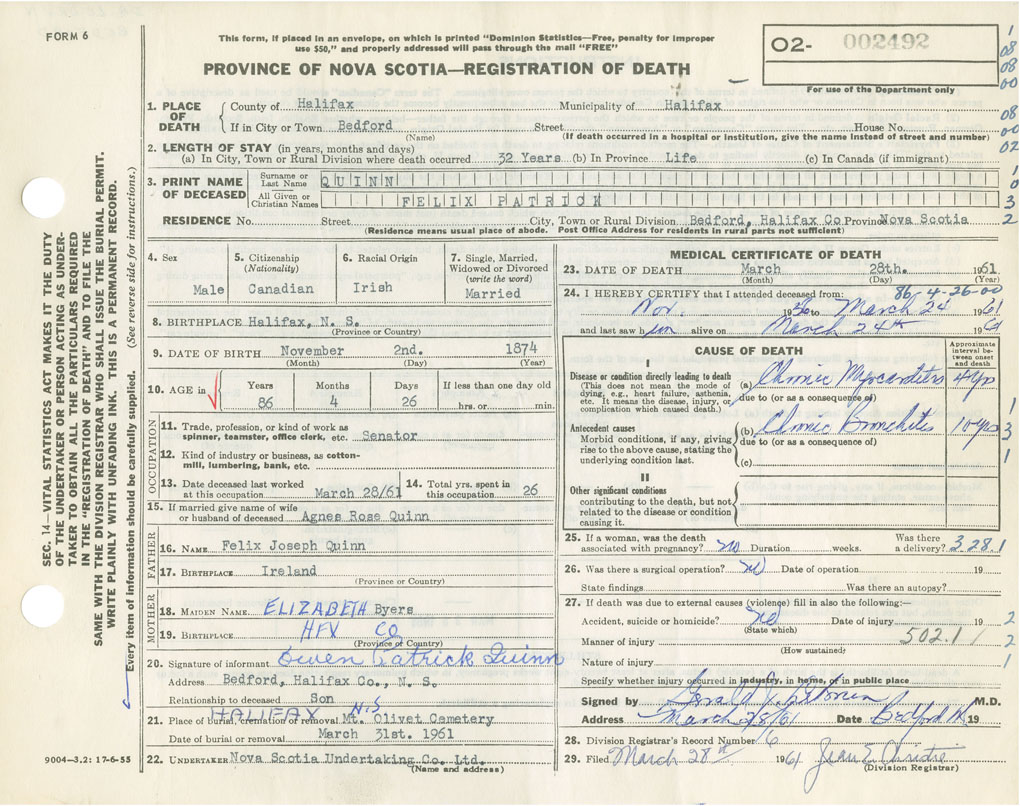 FORM 6
This form, if placed in an envelope, on which is printed "Dominion Statistics—Free, penalty for improper
use $50," and properly addressed will pass through the mail "FREE"
O2- 002492
For use of the Department only
PROVINCE OF NOVA SCOTIA—REGISTRATION OF DEATH
1
08
08
00
08
00
02
1
0
3
2
SEC. 14—VITAL STATISTICS ACT MAKES IT THE DUTY
OF THE UNDERTAKER OR PERSON ACTING AS UNDER-
TAKER TO OBTAIN ALL THE PARTICULARS REQUIRED
IN THE "REGISTRATION OF DEATH" AND TO FILE THE
SAME WITH THE DIVISION REGISTRAR WHO SHALL ISSUE THE BURIAL PERMIT.
WRITE PLAINLY WITH UNFADING INK. THIS IS A PERMANENT RECORD.
Every item of information should be carefully supplied. (See reverse side for instructions.)
1. PLACE OF DEATH
County of Halifax Municipality of Halifax
If in City or Town Bedford Street House No.
(Name) (If death occurred in a hospital or institution, give the name instead of street and number)
2. LENGTH OF STAY (in years, months and days)
(a) In City, Town or Rural Division where death occurred 32 Years (b) In Province Life (c) In Canada (if immigrant)
3. PRINT NAME OF DECEASED
Surname or Last Name QUINN
All Given or Christian Names FELIX PATRICK
RESIDENCE No. Street City, Town or Rural Division Bedford, Halifax Co Province Nova Scotia
(Residence means usual place of abode. Post Office Address for residents in rural parts not sufficient)
4. Sex
Male
5. Citizenship
(Nationality)
Canadian
6. Racial Origin
Irish
7. Single, Married,
Widowed or Divorced
(write the word)
Married
8. BIRTHPLACE Halifax, N. S.
(Province or Country)
9. DATE OF BIRTH November 2nd. 1874
(Month) (Day) (Year)
10. AGE in
Years Months Days If less than one day old
86 4 26 hrs. or min.
OCCUPATION
11. Trade, profession, or kind of work as
spinner, teamster, office clerk, etc. Senator
12. Kind of industry or business, as cotton-
mill, lumbering, bank, etc.
13. Date deceased last worked
at this occupation March 28/61
14. Total yrs. spent in
this occupation 26
15. If married give name of wife
or husband of deceased Agnes Rose Quinn
FATHER
16. NAME Felix Joseph Quinn
17. BIRTHPLACE Ireland
(Province or Country)
MOTHER
18. MAIDEN NAME ELIZABETH Byers
19. BIRTHPLACE HFX CO
(Province or Country)
20. Signature of informant Owen Patrick Quinn
Address Bedford, Halifax Co., N. S.
Relationship to deceased Son
HALIFAX N.S
21. Place of burial, cremation or removal Mt. Olivet Cemetery
Date of burial or removal March 31st. 1961
22. UNDERTAKER Nova Scotia Undertaking Co. Ltd.
(Name and address)
9004—3.2: 17-6-55
MEDICAL CERTIFICATE OF DEATH
23. DATE OF DEATH March 28th. 1961
(Month) (Day) (Year)
86-4-26-00
24. I HEREBY CERTIFY that I attended deceased from:
Nov. 1956 to March 24 1961
and last saw him alive on March 24th 1961
CAUSE OF DEATH
Approximate
interval be-
tween onset
and death
I
Disease or condition directly leading to death
(This does not mean the mode of
dying, e.g., heart failure, asthenia,
etc. It means the disease, injury, or
complication which caused death.)
(a) Chronic Myocarditis 4 yrs
due to (or as a consequence of)
Antecedent causes
Morbid conditions, if any, giving
rise to the above cause, stating the
underlying condition last.
(b) Chronic Bronchitis 10 yrs
due to (or as a consequence of)
(c)
1
3
1
II
Other significant conditions
contributing to the death, but not
related to the disease or condition
causing it.
25. If a woman, was the death Was there
associated with pregnancy? no Duration weeks. a delivery? 3.28.1
26. Was there a surgical operation? no Date of operation 19
State findings Was there an autopsy?
27. If death was due to external causes (violence) fill in also the following:—
Accident, suicide or homicide? no Date of injury 19 2
(State which)
Manner of injury 502.1 2
(How sustained)
Nature of injury 1
Specify whether injury occurred in industry, in home, or in public place
Signed by M.D.
Address March 28/61 Date Bedford 19
28. Division Registrar's Record Number 6
29. Filed March 28th 1961 Jean E Christie
(Division Registrar)